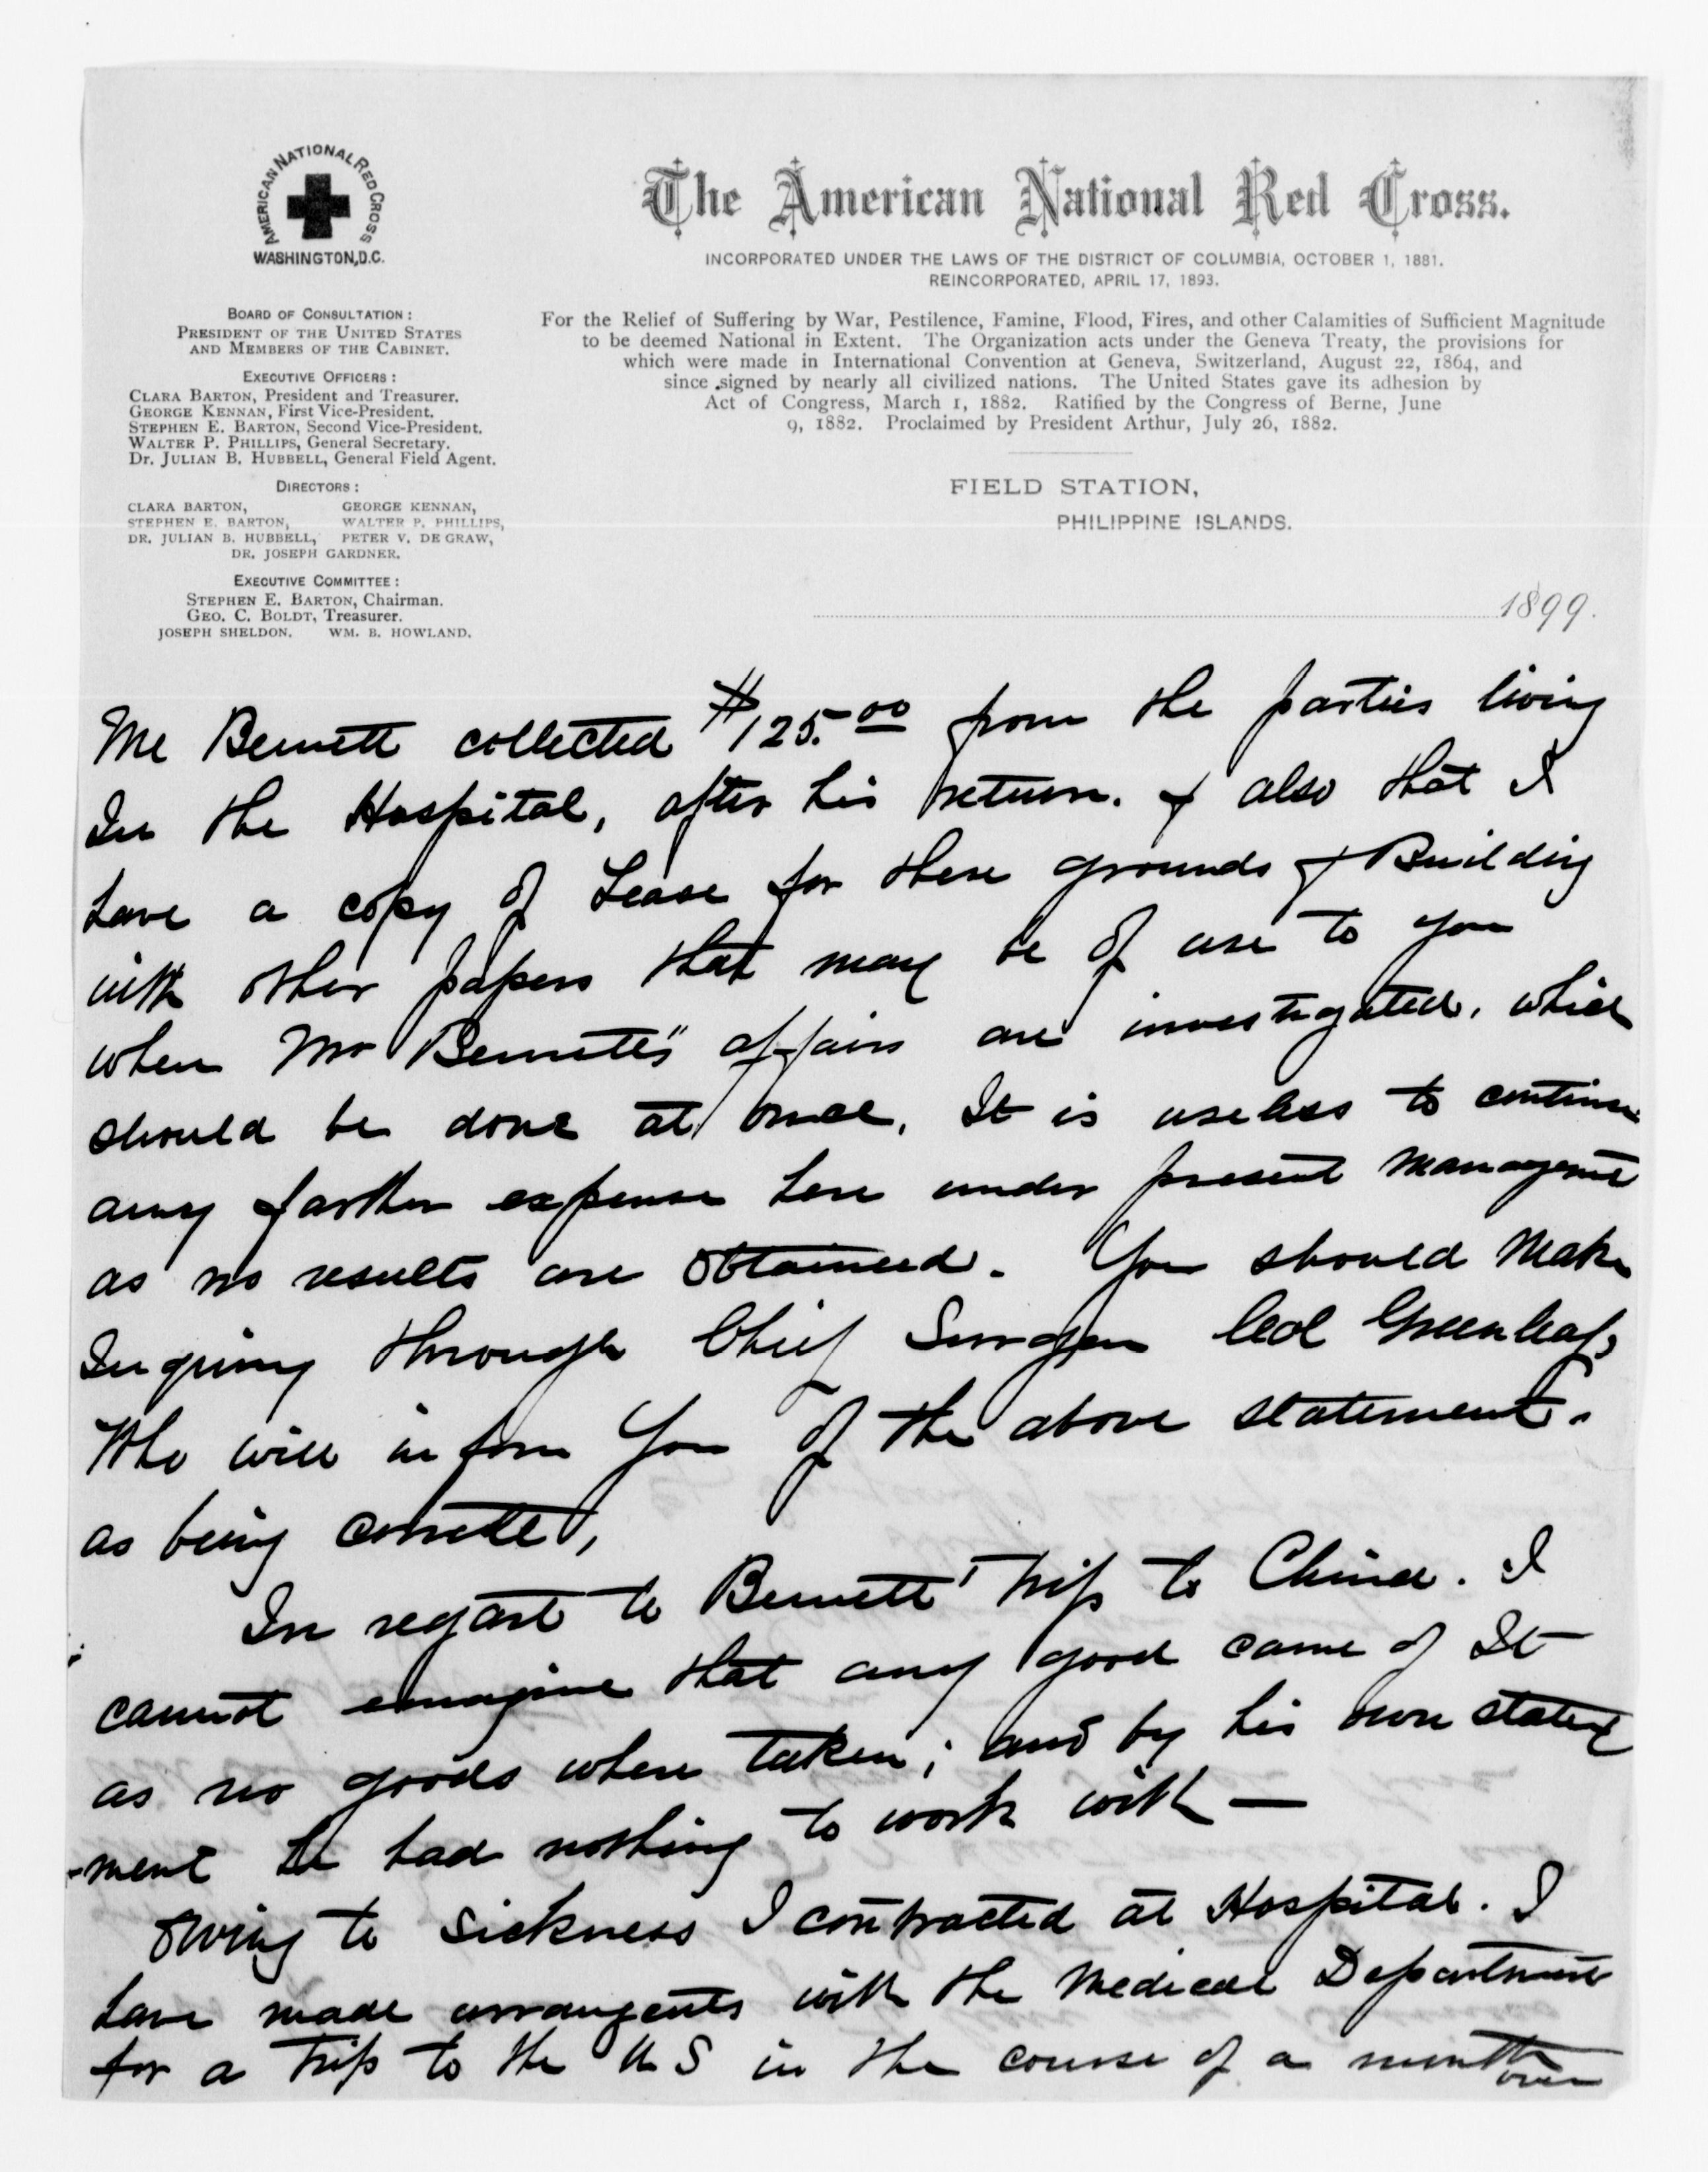 AMERICAN NATIONAL RED CROSS
WASHINGTON, D.C.
The American National Red Cross.
INCORPORATED UNDER THE LAWS OF THE DISTRICT OF COLUMBIA, OCTOBER 1, 1881.
REINCORPORATED, APRIL 17, 1893.
For the Relief of Suffering by War, Pestilence, Famine, Flood, Fires, and other Calamities of Sufficient Magnitude
to be deemed National in Extent. The Organization acts under the Geneva Treaty, the provisions for
which were made in International Convention at Geneva, Switzerland, August 22, 1864, and
since signed by nearly all civilized nations. The United States gave its adhesion by
Act of Congress, March 1, 1882. Ratified by the Congress of Berne, June
9, 1882. Proclaimed by President Arthur, July 26, 1882.
BOARD OF CONSULTATION:
PRESIDENT OF THE UNITED STATES
AND MEMBERS OF THE CABINET.
EXECUTIVE OFFICERS:
CLARA BARTON, President and Treasurer.
GEORGE KENNAN, First Vice-President.
STEPHEN E. BARTON, Second Vice-President.
WALTER P. PHILLIPS, General Secretary.
Dr. JULIAN B. HUBBELL, General Field Agent.
DIRECTORS:
CLARA BARTON, GEORGE KENNAN,
STEPHEN E. BARTON, WALTER P. PHILLIPS,
DR. JULIAN B. HUBBELL, PETER V. DE GRAW,
DR. JOSEPH GARDNER.
EXECUTIVE COMMITTEE:
STEPHEN E. BARTON, Chairman.
GEO. C. BOLDT, Treasurer.
JOSEPH SHELDON. WM. B. HOWLAND.
FIELD STATION,
PHILIPPINE ISLANDS.
1899.
Mr Bennett collected $125.00 from the parties living
In the Hospital, after his return. & also that I
have a copy of Lease for these grounds & Building
with other papers that may be of use to you
when Mr Bennett's affairs are investigated, which
should be done at once. It is useless to continue
any farther expense here under present management
as no results are obtained. You should make
Inquiry through Chief Surgon Col Greenleaf,
Who will inform You of the above statement.
as being correct,
In regart to Bennett' trip to China. I
cannot emagine that any good came of It
as no goods where taken; and by his own state
-ment he had nothing to work with —
Owing to sickness I contracted at Hospital. I
have made arrangents with the Medical Department
for a trip to the U S in the course of a month
over